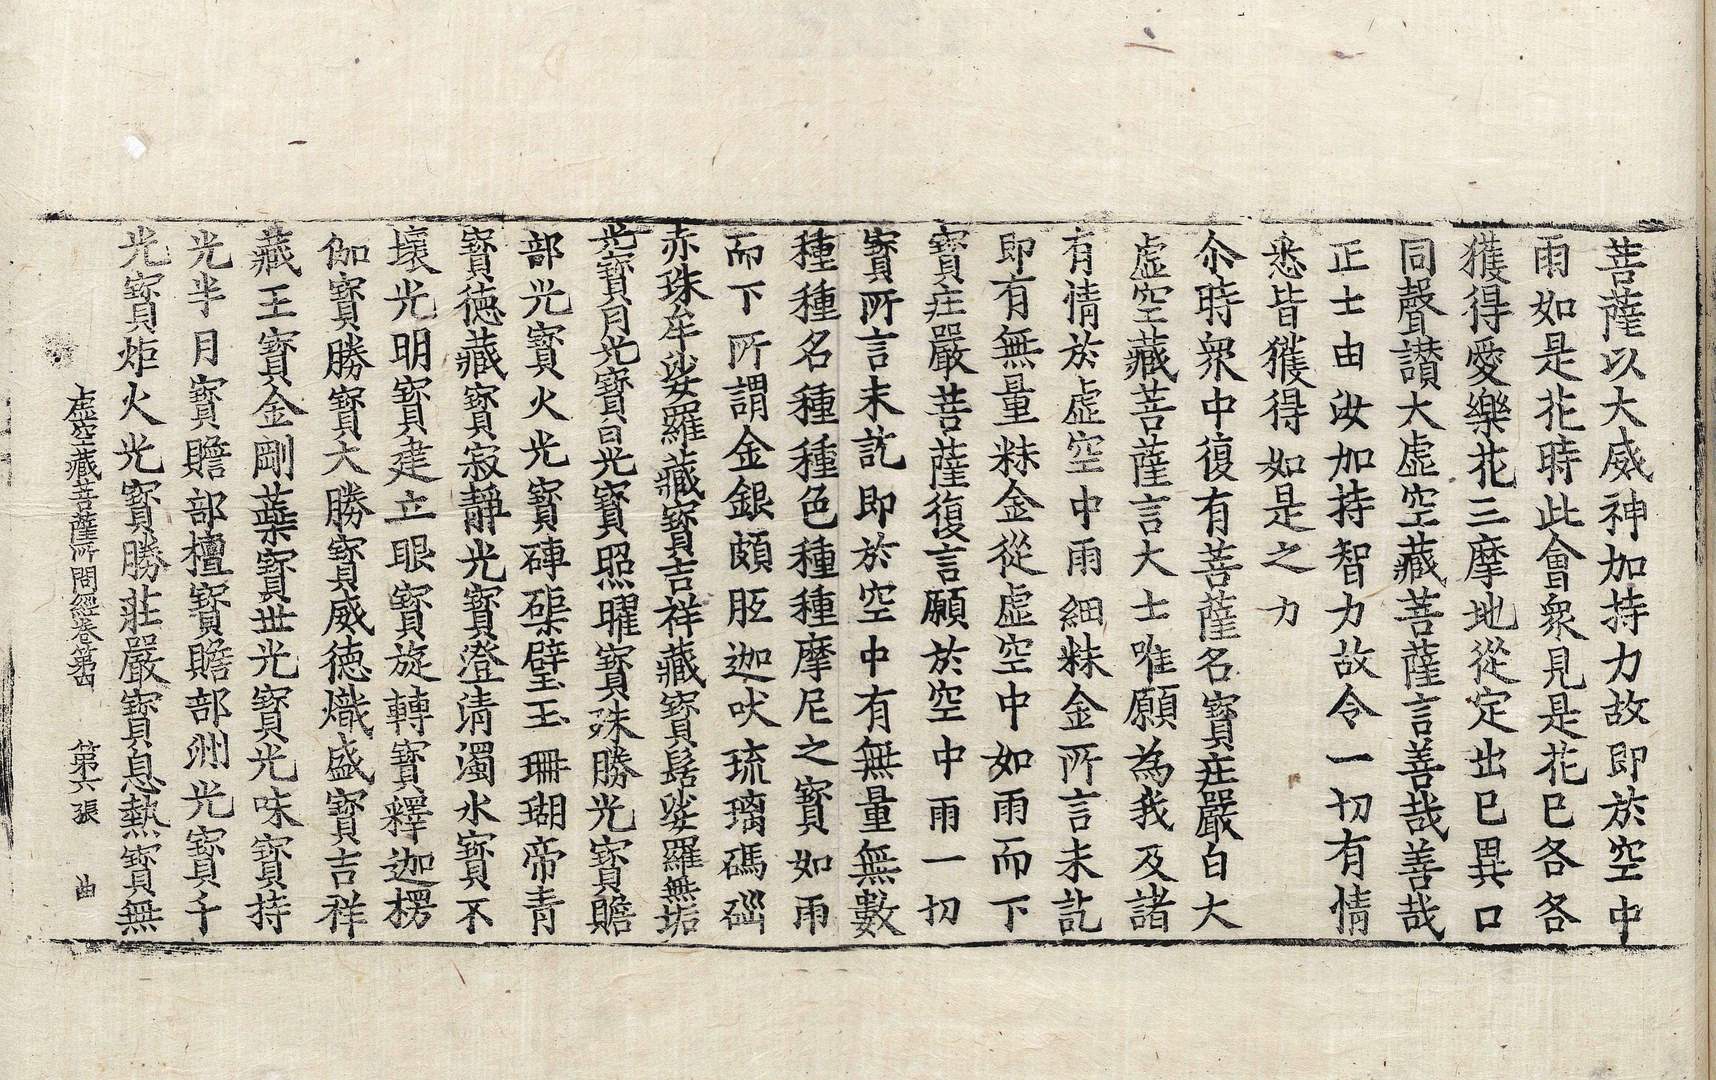 菩薩以大威神加持力故即於空中
雨如是花時此會衆見是花已各各
獲得愛樂花三摩地從定出已異口
同聲讃大虛空藏菩薩言善哉善哉
正士由汝加持智力故令一切有情
悉皆獲得如是之力
尒時衆中復有菩薩名寶莊嚴白大
虛空藏菩薩言大士唯願為我及諸
有情於虛空中雨細粖金所言未訖
即有無量粖金從虛空中如雨而下
寶莊嚴菩薩復言願於空中雨一切
寶所言未訖即於空中有無量無數
種種名種種色種種摩尼之寶如雨
而下所謂金銀頗胝迦吠琉璃碼碯
赤珠牟娑羅藏寶吉祥藏寶髻娑羅無垢
光寶月光寶日光寶照曜寶殊勝光寶贍
部光寶火光寶硨磲璧玉珊瑚帝青
寶德藏寶寂靜光寶澄清濁水寶不
壞光明寶建立眼寶旋轉寶釋迦楞
伽寶勝寶大勝寶威德熾盛寶吉祥
藏王寶金剛蘂寶世光寶光味寶持
光半月寶贍部檀寶贍部洲光寶千
光寶炬火光寶勝莊嚴寶息熱寶無
虛空藏菩薩所問經卷第四 第六張 曲